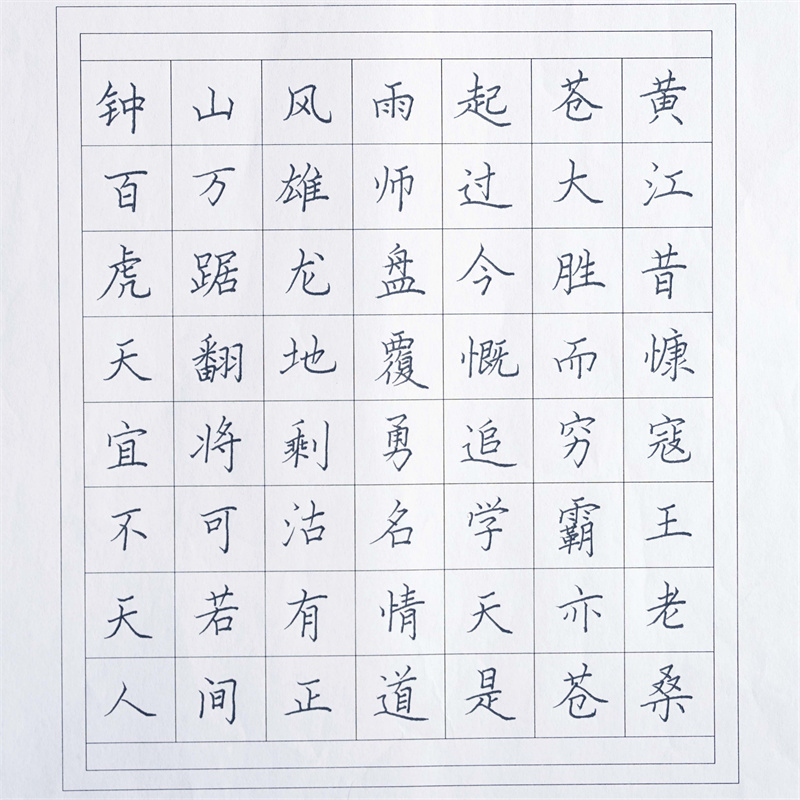 钟山风雨起苍黄
百万雄师过大江
虎踞龙盘今胜昔
天翻地覆慨而慷
宜将剩勇追穷寇
不可沽名学霸王
天若有情天亦老
人间正道是苍桑